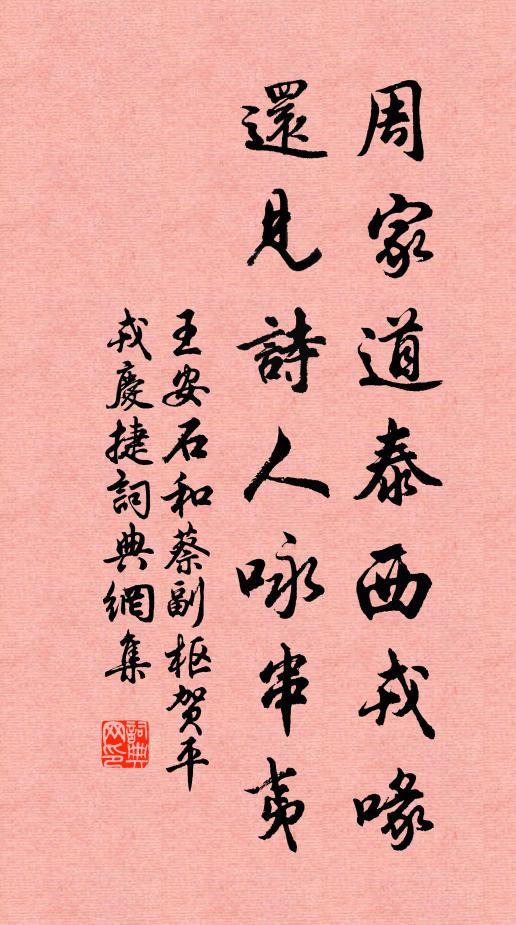 周家道泰西戎喙
還見詩人咏串夷
王安石和蔡副枢贺平
戎慶捷詞典網集
詞典网印